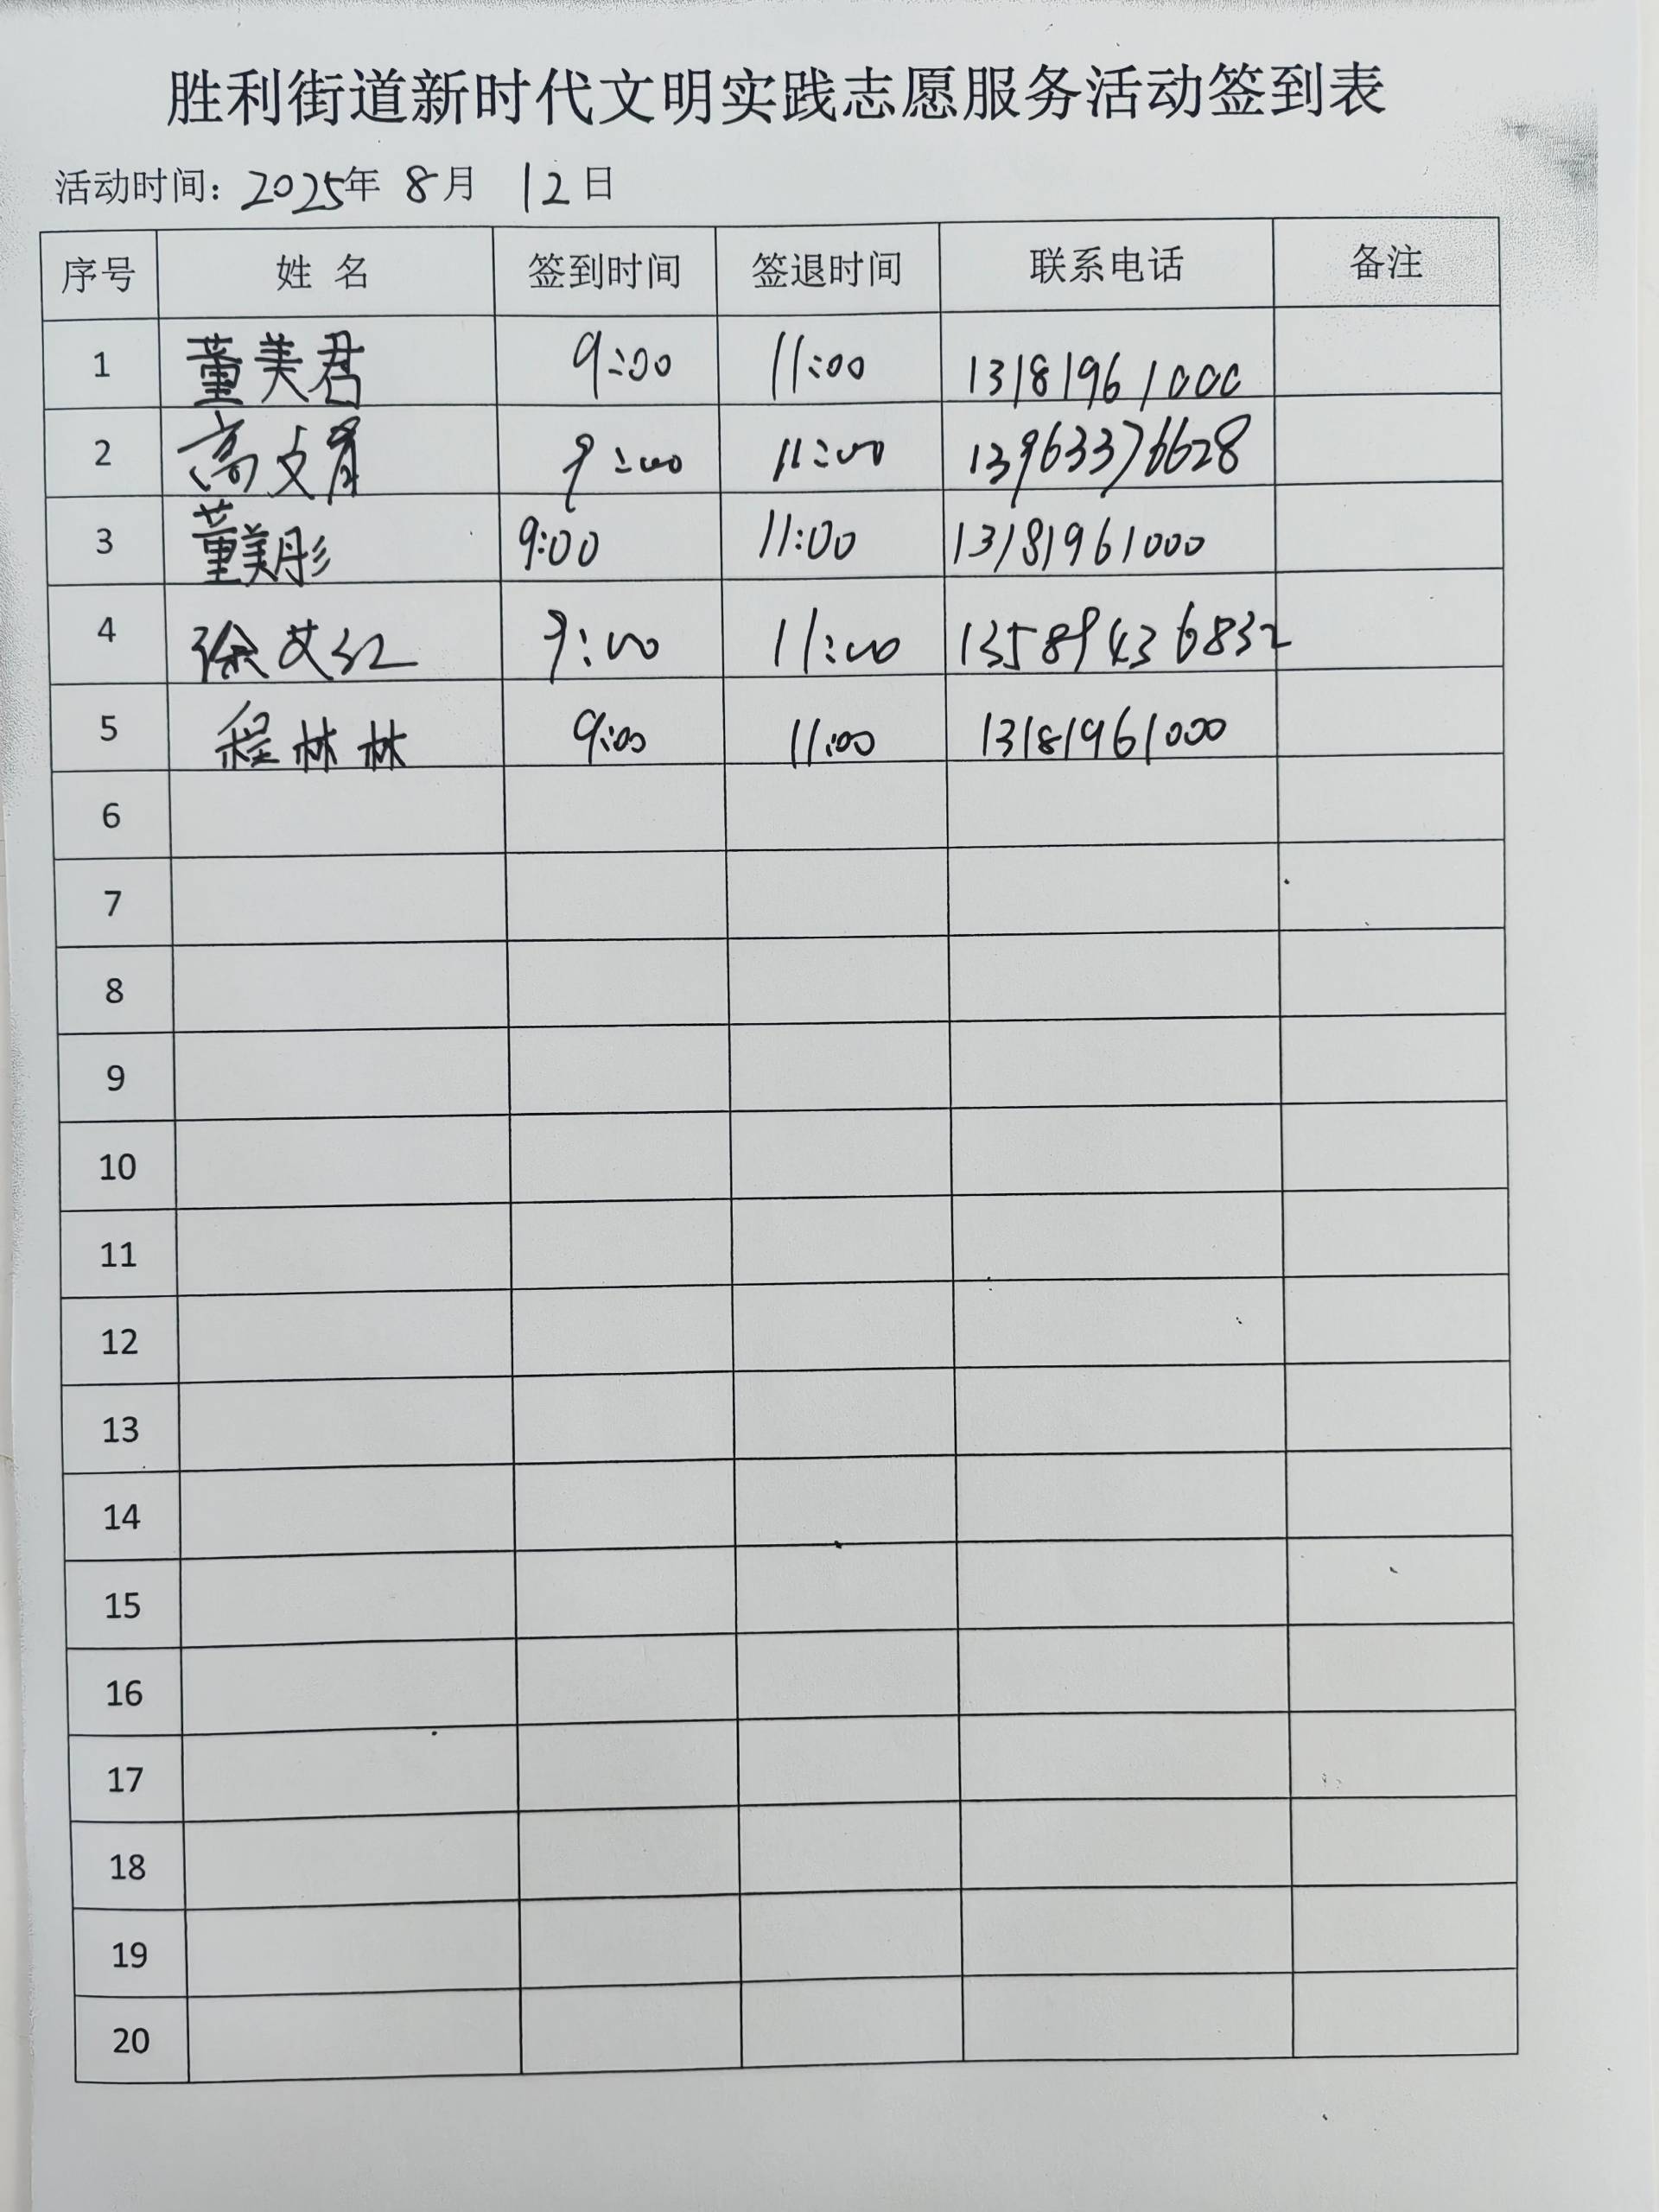 胜利街道新时代文明实践志愿服务活动签到表
活动时间：2025年 8月 12日
序号 姓 名 签到时间 签退时间 联系电话 备注
1 董美君 9:00 11:00 13181961000
2 高文 9:00 11:00 13963376628
3 董美彤 9:00 11:00 13181961000
4 徐艾红 9:00 11:00 13589436832
5 程林林 9:00 11:00 13181961000
6
7
8
9
10
11
12
13
14
15
16
17
18
19
20